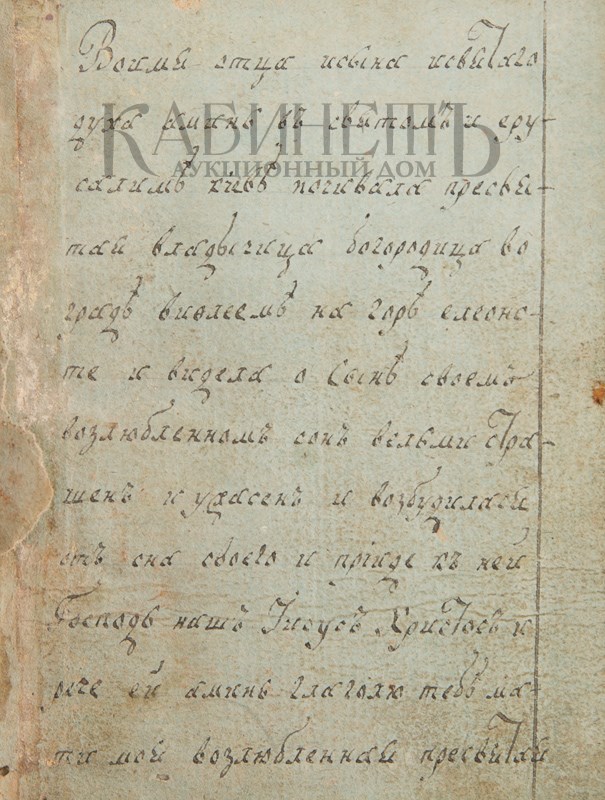 Воимя отца исына исвятаго
духа аминь въ святомъ иеру-
КАБИНЕТЪ
АУКЦИОННЫЙ ДОМ
салимѣ почивала пресвя-
тая владычица богородица во
градѣ виѳлеемѣ на горѣ елеонс-
те и видела о сынѣ своемъ
возлюбленномъ сонъ вельми стра-
шенъ и ужасенъ и возбудилася
отъ сна своего и пріиде къ ней
Господь нашъ Іисусъ Христосъ и
рече ей аминь глаголю тебѣ ма-
ти моя возлюбленная пресвятая